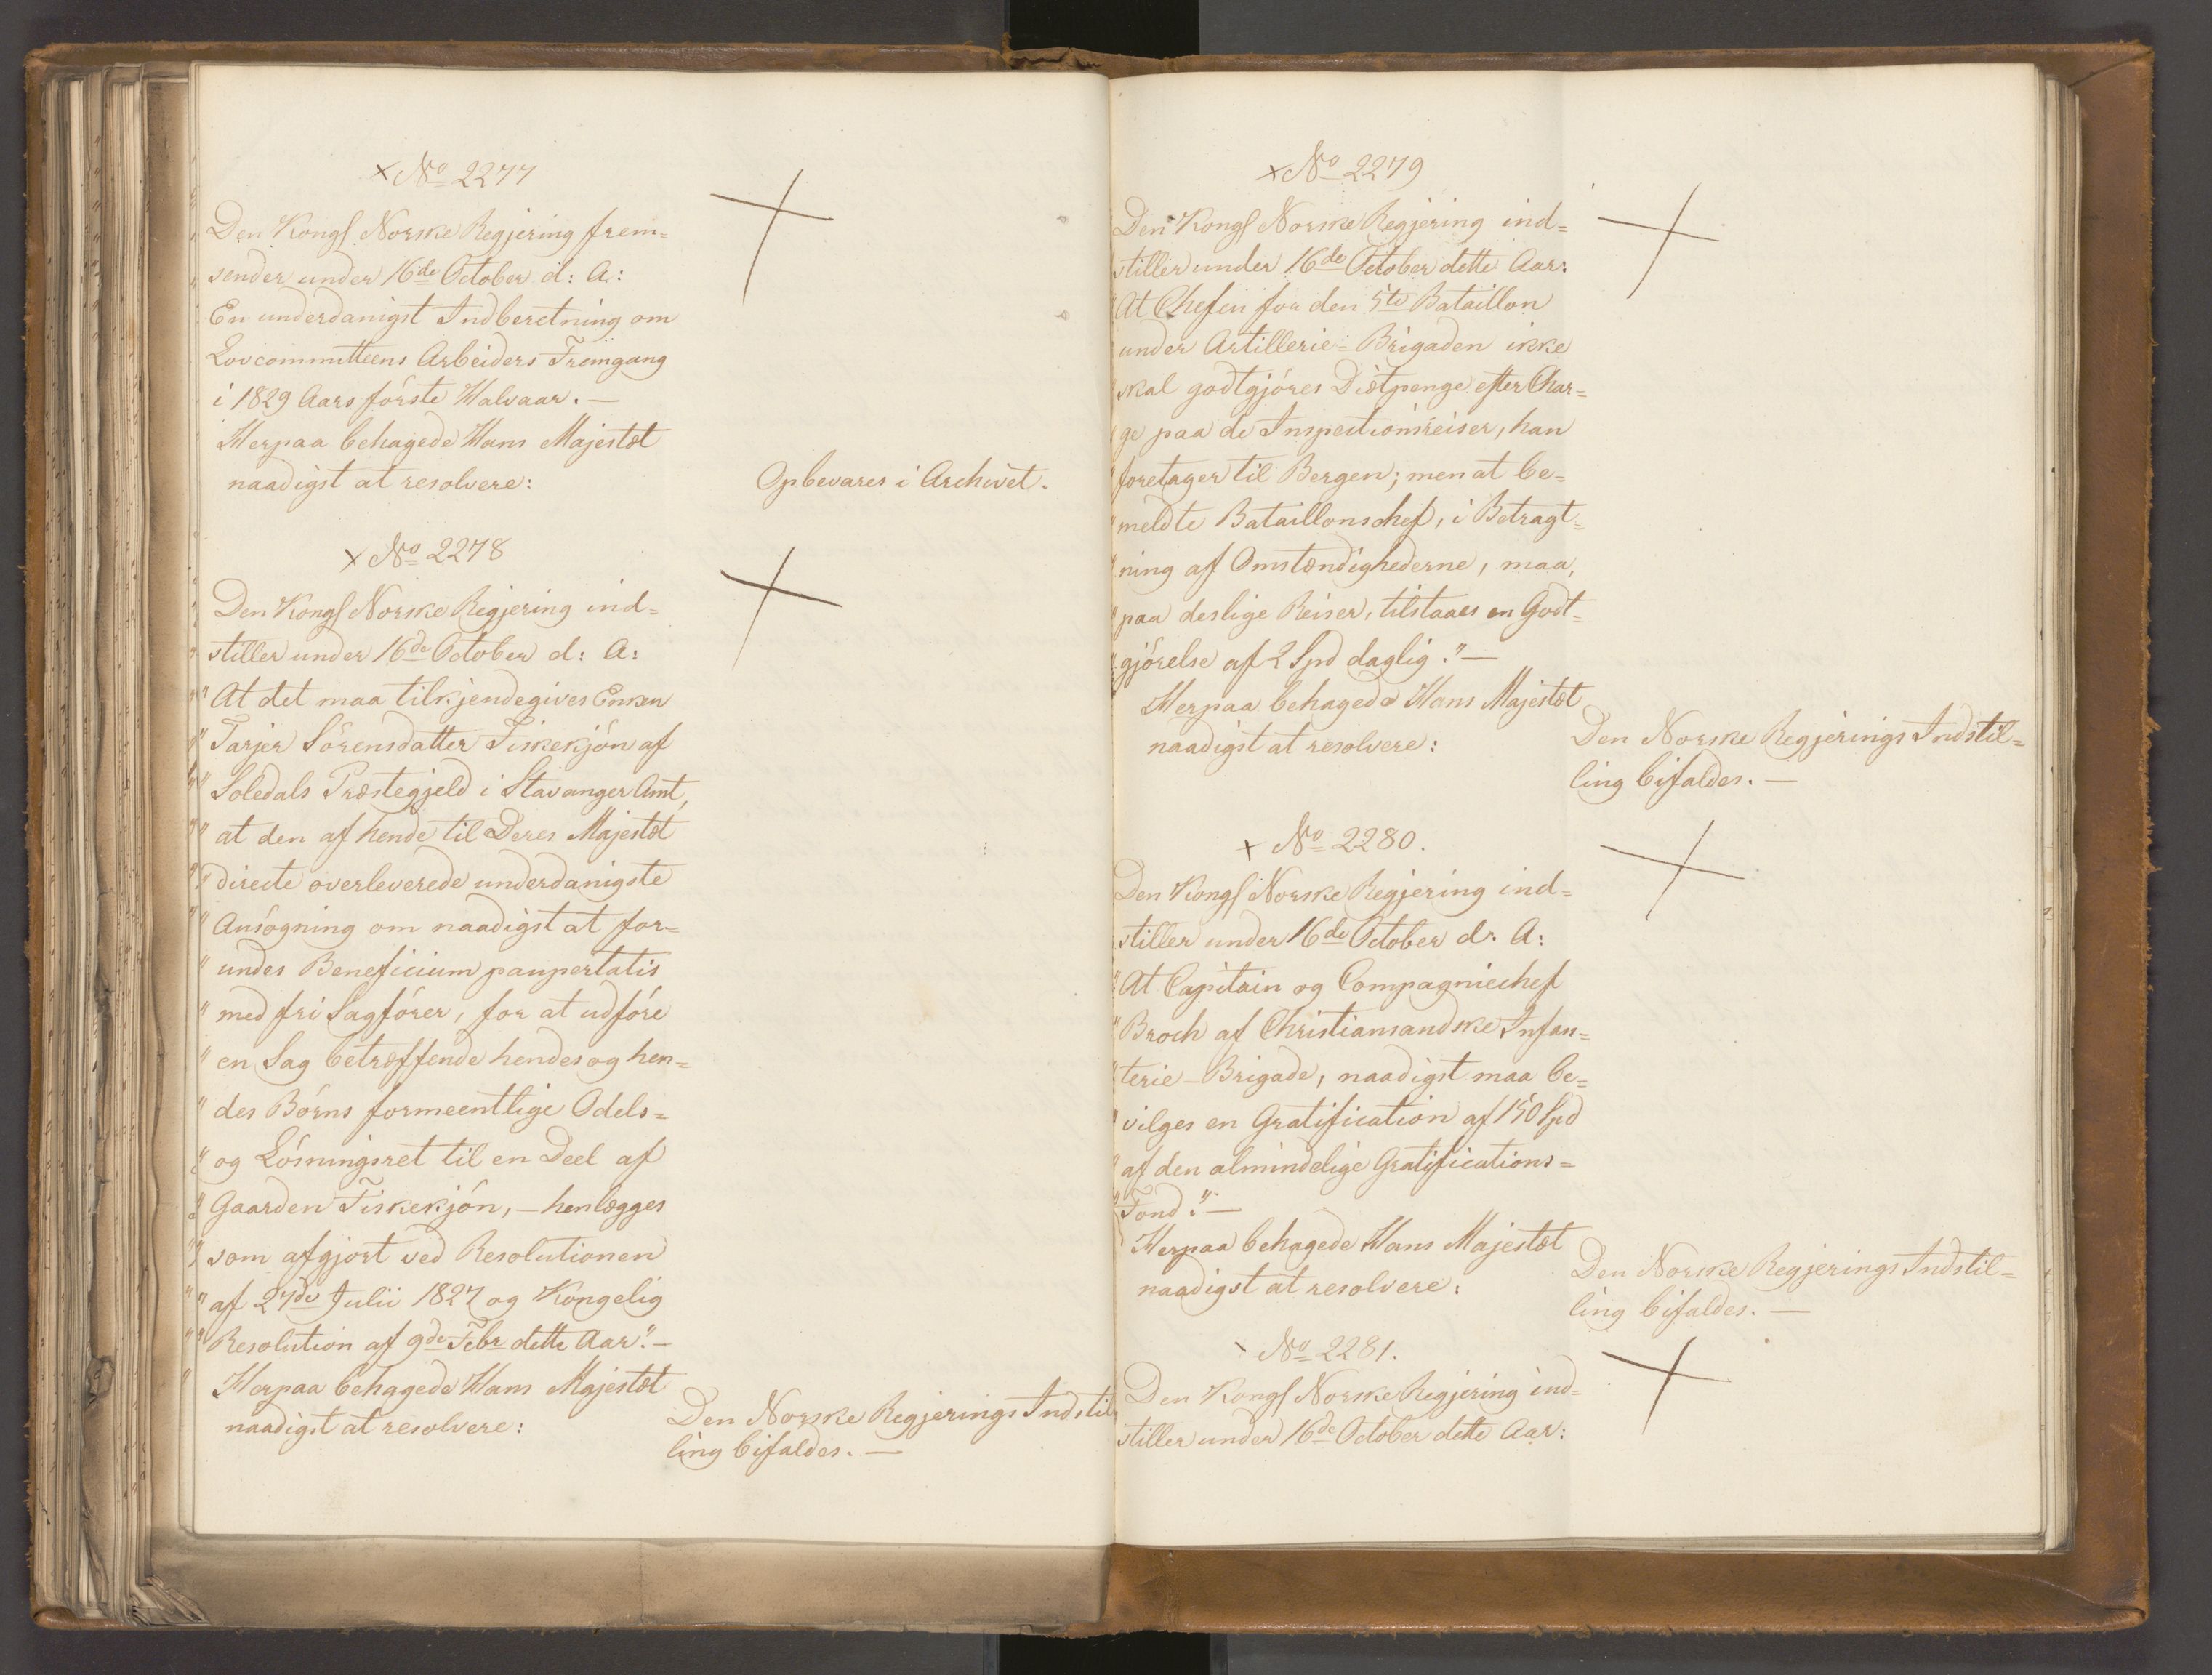 × No 2277
Den Kongl Norske Regjering frem=
sender under 16de October d: A:
En underdanigst Indberetning om
Lovcommitteens Arbeiders Fremgang
i 1829 Aars förste Halvaar. —
Herpaa behagede Hans Majestæt
naadigst at resolvere:
Opbevares i Archivet.
× No 2278
Den Kongl Norske Regjering ind=
stiller under 16de October d: A:
"At det maa tilkjendegives Enken
"Tarjer Sörensdatter Fiskekjön af
"Soledals Præstegjeld i Stavanger Amt,
"at den af hende til Deres Majestæt
"directe overleverede underdanigste
"Ansögning om naadigst at for=
"undes Beneficium paupertatis
"med fri Sagförer, for at udföre
"en Sag betræffende hendes og hen=
"des Börns formeentlige Odels=
"og Lösningsret til en Deel af
"Gaarden Fiskekjön, — henlægges
"som afgjort ved Resolutionen
"af 27de Julii 1827 og Kongelig
"Resolution af 9de Febr dette Aar." —
Herpaa behagede Hans Majestæt
naadigst at resolvere:
Den Norske Regjerings Indstil=
ling bifaldes. —
× No 2279
Den Kongl Norske Regjering ind=
stiller under 16de October dette Aar:
"At Chefen for den 5te Bataillon
"under Artillerie=Brigaden ikke
"skal godtgjöres Diætpenge efter Char=
"ge paa de Inspectionsreiser, han
"foretager til Bergen; men at be=
"meldte Bataillonschef, i Betragt=
"ning af Omstændighederne, maa,
"paa deslige Reiser, tilstaaes en Godt=
"gjörelse af 2 Spd daglig." —
Herpaa behagede Hans Majestæt
naadigst at resolvere:
Den Norske Regjerings Indstil=
ling bifaldes. —
× No 2280.
Den Kongl Norske Regjering ind=
stiller under 16de October d: A:
"At Capitain og Compagniechef
"Broch af Christiansandske Infan=
"terie-Brigade, naadigst maa be=
"vilges en Gratification af 150 Spd
"af den almindelige Gratifications=
"Fond." —
Herpaa behagede Hans Majestæt
naadigst at resolvere:
Den Norske Regjerings Indstil=
ling bifaldes. —
× No 2281.
Den Kongl Norske Regjering ind=
stiller under 16de October dette Aar: